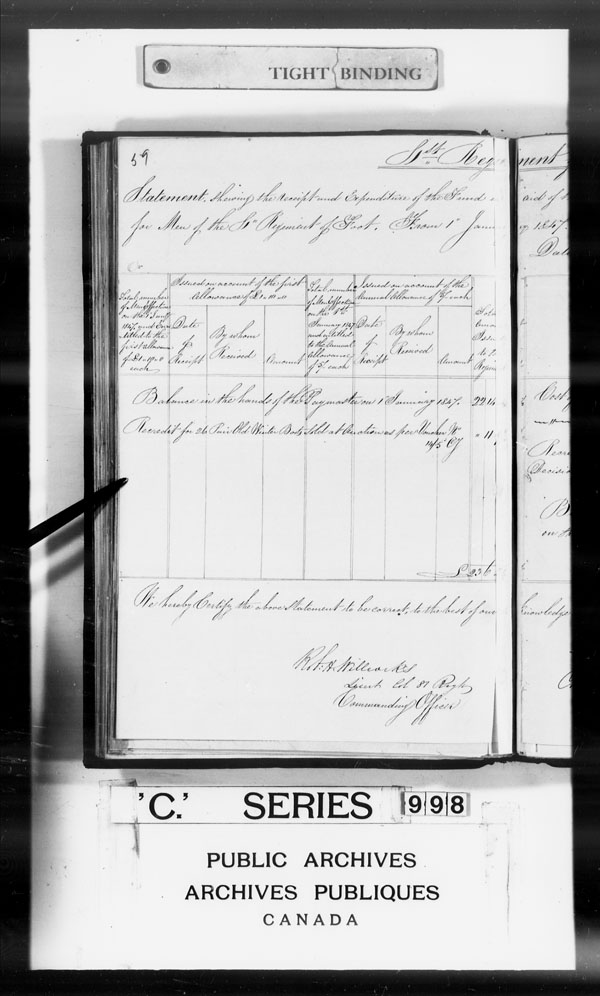 TIGHT BINDING
59
81st Regiment
Statement, shewing the receipt and Expenditure of the Fund aid of
for Men of the 81st Regiment of Foot. From 1st January 1847
Date
Dr
Issued on account of the first
Allowance of
Issued on account of the
Annual Allowance of 5/ each
Total number
of Men Effective
on the 1 Jany
1847 and En-
titled to the
first allowance
of
each
Date
of
Receipt
By whom
Received
Amount
Total number
of Men Effective
on the 1st
January 1847
and entitled
to the Annual
Allowance
of 5/ each
Date
of
Receipt
By whom
Received
Amount
Balance in the hands of the Paymaster on 1st January 1847. 22
Recredit for 24 Pair Old Winter Boots Sold at Auction as per Voucher No
" 11
on th
We hereby Certify the above statement to be correct, to the best of our knowledge
Lieut Col 81 Regt
Commanding Officer
'C.' SERIES 998
PUBLIC ARCHIVES
ARCHIVES PUBLIQUES
CANADA